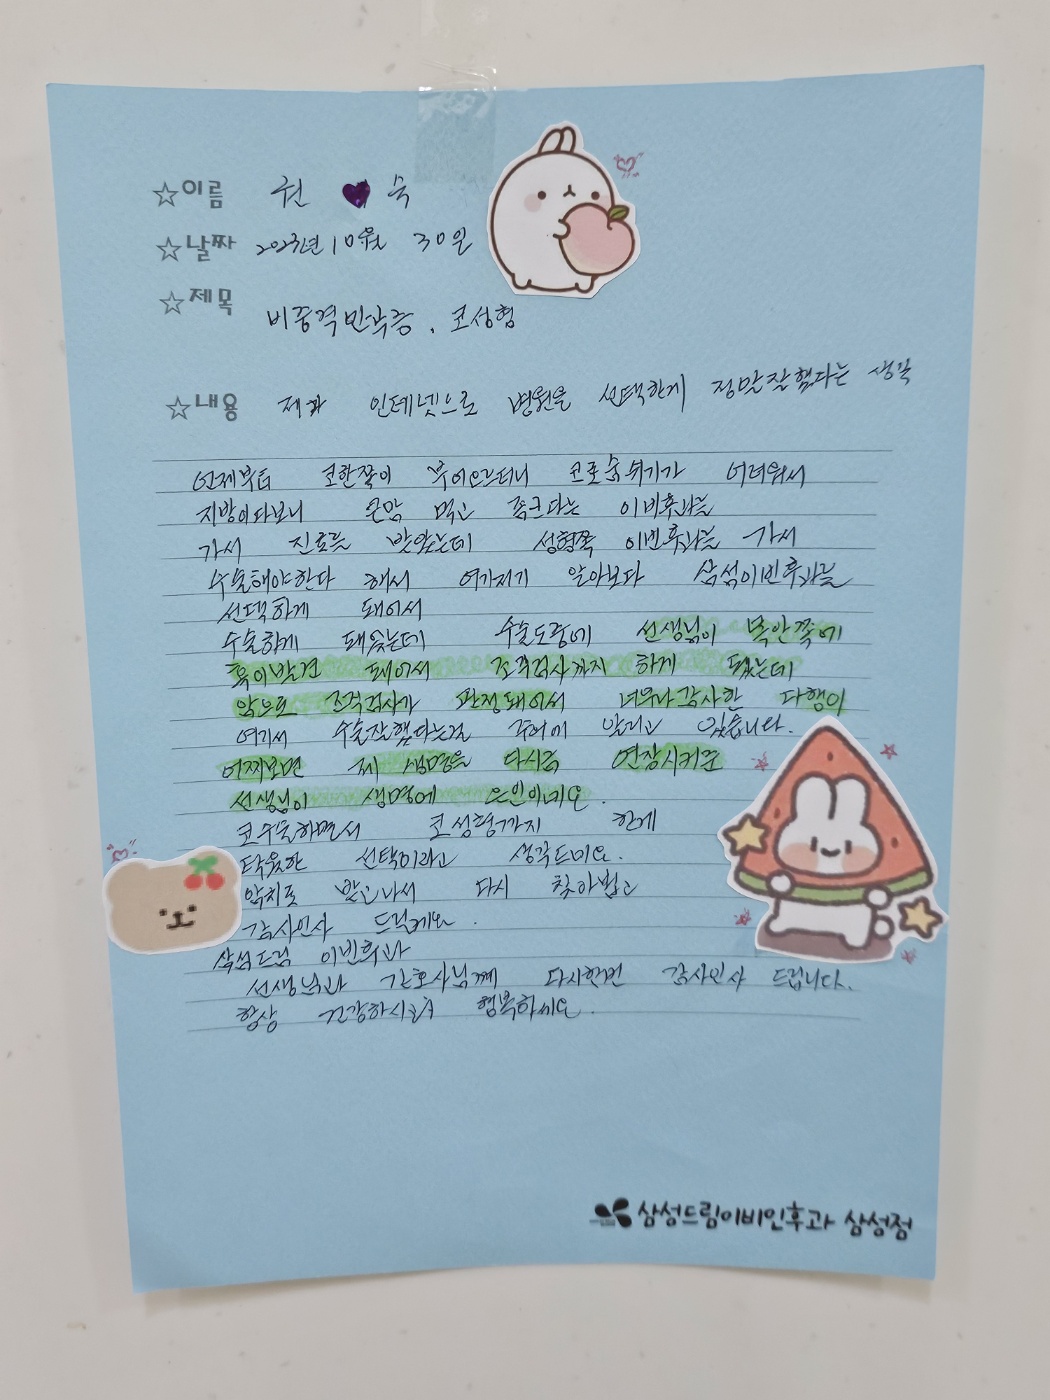 ☆이름 권 ♥ 숙
☆날짜 2023년 10월 30일
☆제목 비중격만곡증, 코성형
☆내용 제가 인테넷으로 병원을 선택한게 정말잘했다는 생각
언제부터 코한쪽이 부어오르더니 코로숨쉬기가 어려워서
지방이다보니 큰맘 먹고 좀크다는 이비후과를
가서 진료를 받았는데 성형쪽 이빈후과를 가서
수술해야한다 해서 여기저기 알아보다 삼성이빈후과를
선택하게 돼어서
수술하게 돼있는데 수술도중에 선생님이 목안쪽에
혹이발견 돼어서 조직검사까지 하게 됐는데
암으로 조직검사가 판정돼어서 너무나감사한 다행이
여기서 수술잘했다는걸 주위에 알리고 있습니다.
어찌보면 제 생명을 다시금 연장시켜준
선생님이 생명에 은인이네요.
코수술하면서 코성형까지 한게
탁웠한 선택이라고 생각드네요.
암치료 받고나서 다시 찾아뵙고
감사인사 드릴께요.
삼성드림 이빈후과
선생님과 간호사님께 다시한번 감사인사 드립니다.
항상 건강하시고 행복하세요.
삼성드림이비인후과 삼성점